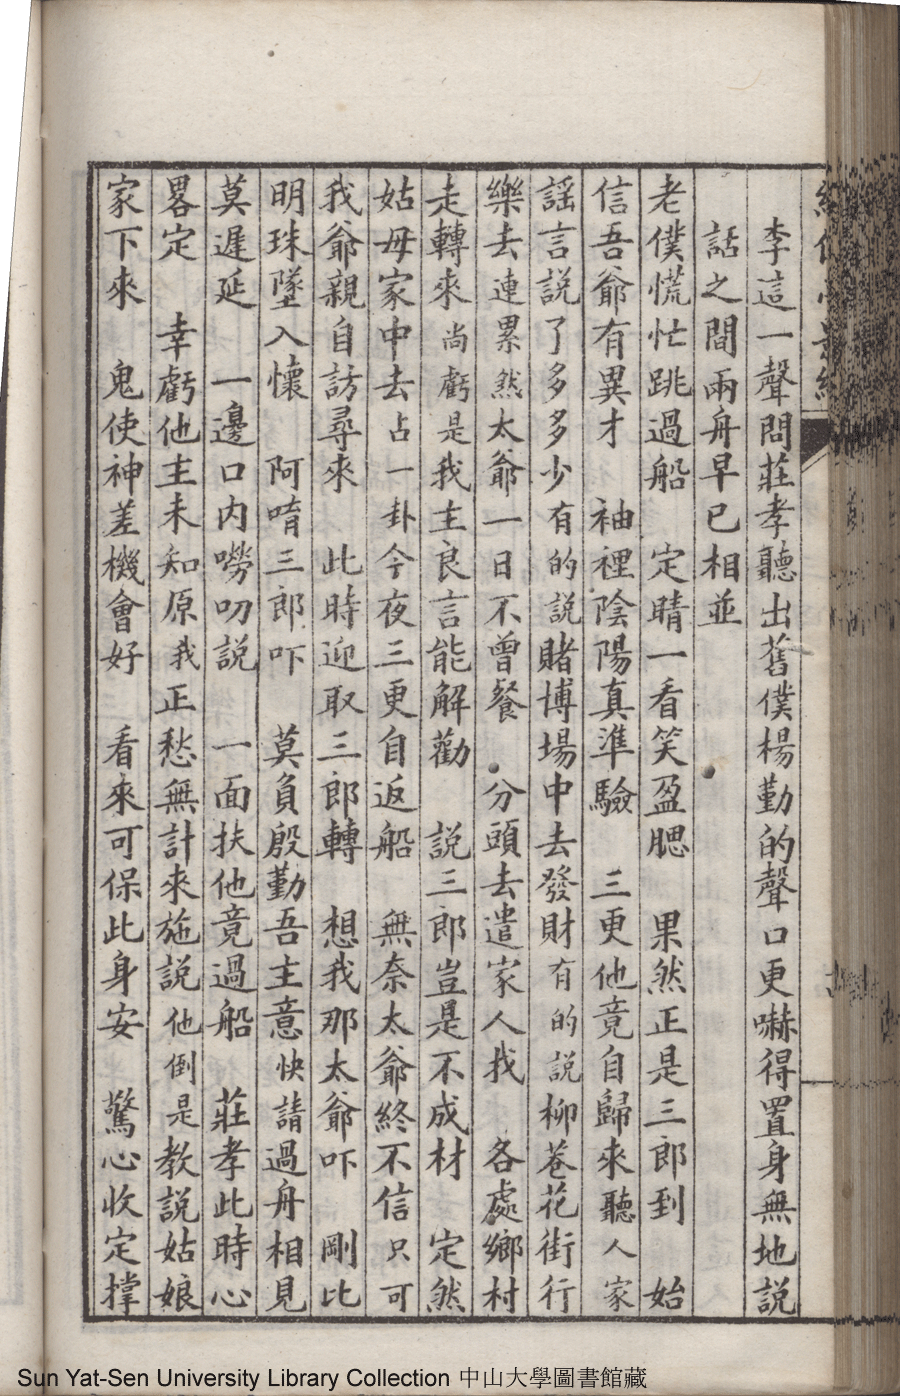 李這一聲問莊孝聽出舊僕楊勤的聲口更嚇得置身無地說
話之間兩舟早已相並
老僕慌忙跳過船　定睛一看笑盈腮　果然正是三郎到　始
信吾爺有異才　袖裡陰陽真準驗　三更他竟自歸來聽人家
謡言說了多多少有的說賭博場中去發財有的說柳巷花街行
樂去連累然太爺一日不曾餐　分頭去遣家人找　各處鄉村
走轉來尚虧是我主良言能解勸　說三郎豈是不成材　定然
姑母家中去占一卦今夜三更自返船　無奈太爺終不信只可
我爺親自訪尋來　此時迎取三郎轉　想我那太爺吓　剛比
明珠墜入懷　阿唷三郎吓　莫負殷勤吾主意快請過舟相見
莫遲延　一邊口內嘮叨說　一面扶他竟過船　莊孝此時心
畧定　幸虧他主未知原我正愁無計來施說他倒是教說姑娘
家下來　鬼使神差機會好　看來可保此身安　驚心收定撑
Sun Yat-Sen University Library Collection 中山大學圖書館藏